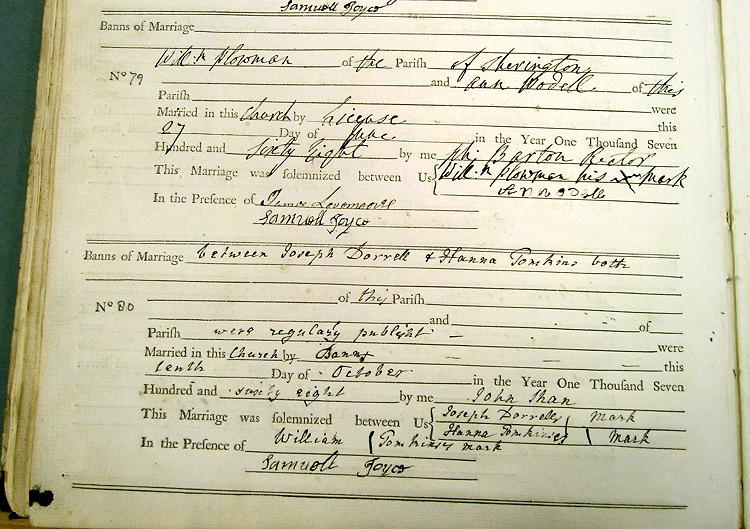 Samuell Joyce
Banns of Marriage
Will:m Plowman of the Parish of Sherington
No 79 and Ann Wodell of this
Parish were
Married in this Church by License this
27 Day of June in the Year One Thousand Seven
Hundred and Sixty Eight by me Phi: Barton Rector
This Marriage was solemnized between Us Will:m Plowman his X mark
In the Presence of
Samuell Joyce
Banns of Marriage between Joseph Dorrell & Hanna Tomkins both
of this Parish
No 80 and of
Parish were regularly publisht
Married in this Church by Banns were
tenth Day of October this
in the Year One Thousand Seven
Hundred and sixty eight by me John Shan
This Marriage was solemnized between Us Joseph Dorrells Mark
Hanna Tomkinses Mark
In the Presence of William Tomkinses mark
Samuell Joyce